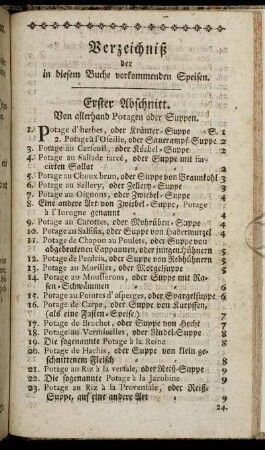 Verzeichniß
der
in diesem Buche vorkommenden Speisen.
Erster Abschnitt.
Von allerhand Potagen oder Suppen.
1. Potage d'herbes, oder Kräuter-Suppe S. 1
2. Potage à l'Oseille, oder Sauerampf-Suppe 2
3. Potage au Cerfeuil, oder Körbel-Suppe 2
4. Potage au Sallade farcé, oder Suppe mit far-
cirten Sallat 2
5. Potage au Choux brun, oder Suppe von Braunkohl 3
6. Potage au Sellery, oder Zellery-Suppe 3
7. Potage au Oignons, oder Zwiebel-Suppe 4
8. Eine andere Art von Zwiebel-Suppe, Potage
à l'Ivrogne genannt 4
9. Potage au Carottes, oder Mohrüben-Suppe 4
10. Potage au Salsifis, oder Suppe von Haberwurzel 4
11. Potage de Chapon au Poulets, oder Suppe von
abgebratenen Cappaunen, oder jungen Hühnern 5
12. Potage de Perdrix, oder Suppe von Rebhühnern 5
13. Potage au Morilles, oder Morgelsuppe 5
14. Potage au Moufferons, oder Suppe mit Ra-
sen-Schwämmen 6
15. Potage au Pointes d'asperges, oder Spargelsuppe 6
16. Potage de Carpe, oder Suppe von Karpffen,
(als eine Fasten-Speise) 7
17. Potage de Brochet, oder Suppe von Hecht 7
18. Potage au Vermicelles, oder Nudel-Suppe 8
19. Die sogenannte Potage à la Reine 8
20. Potage de Hachis, oder Suppe von klein ge-
schnittenem Fleisch 8
21. Potage au Riz à la versale, oder Reiß-Suppe 8
22. Die sogenannte Potage à la Jacobine 9
23. Potage au Riz à la Proventale, oder Reiß-
Suppe, auf eine andere Art 9
24.